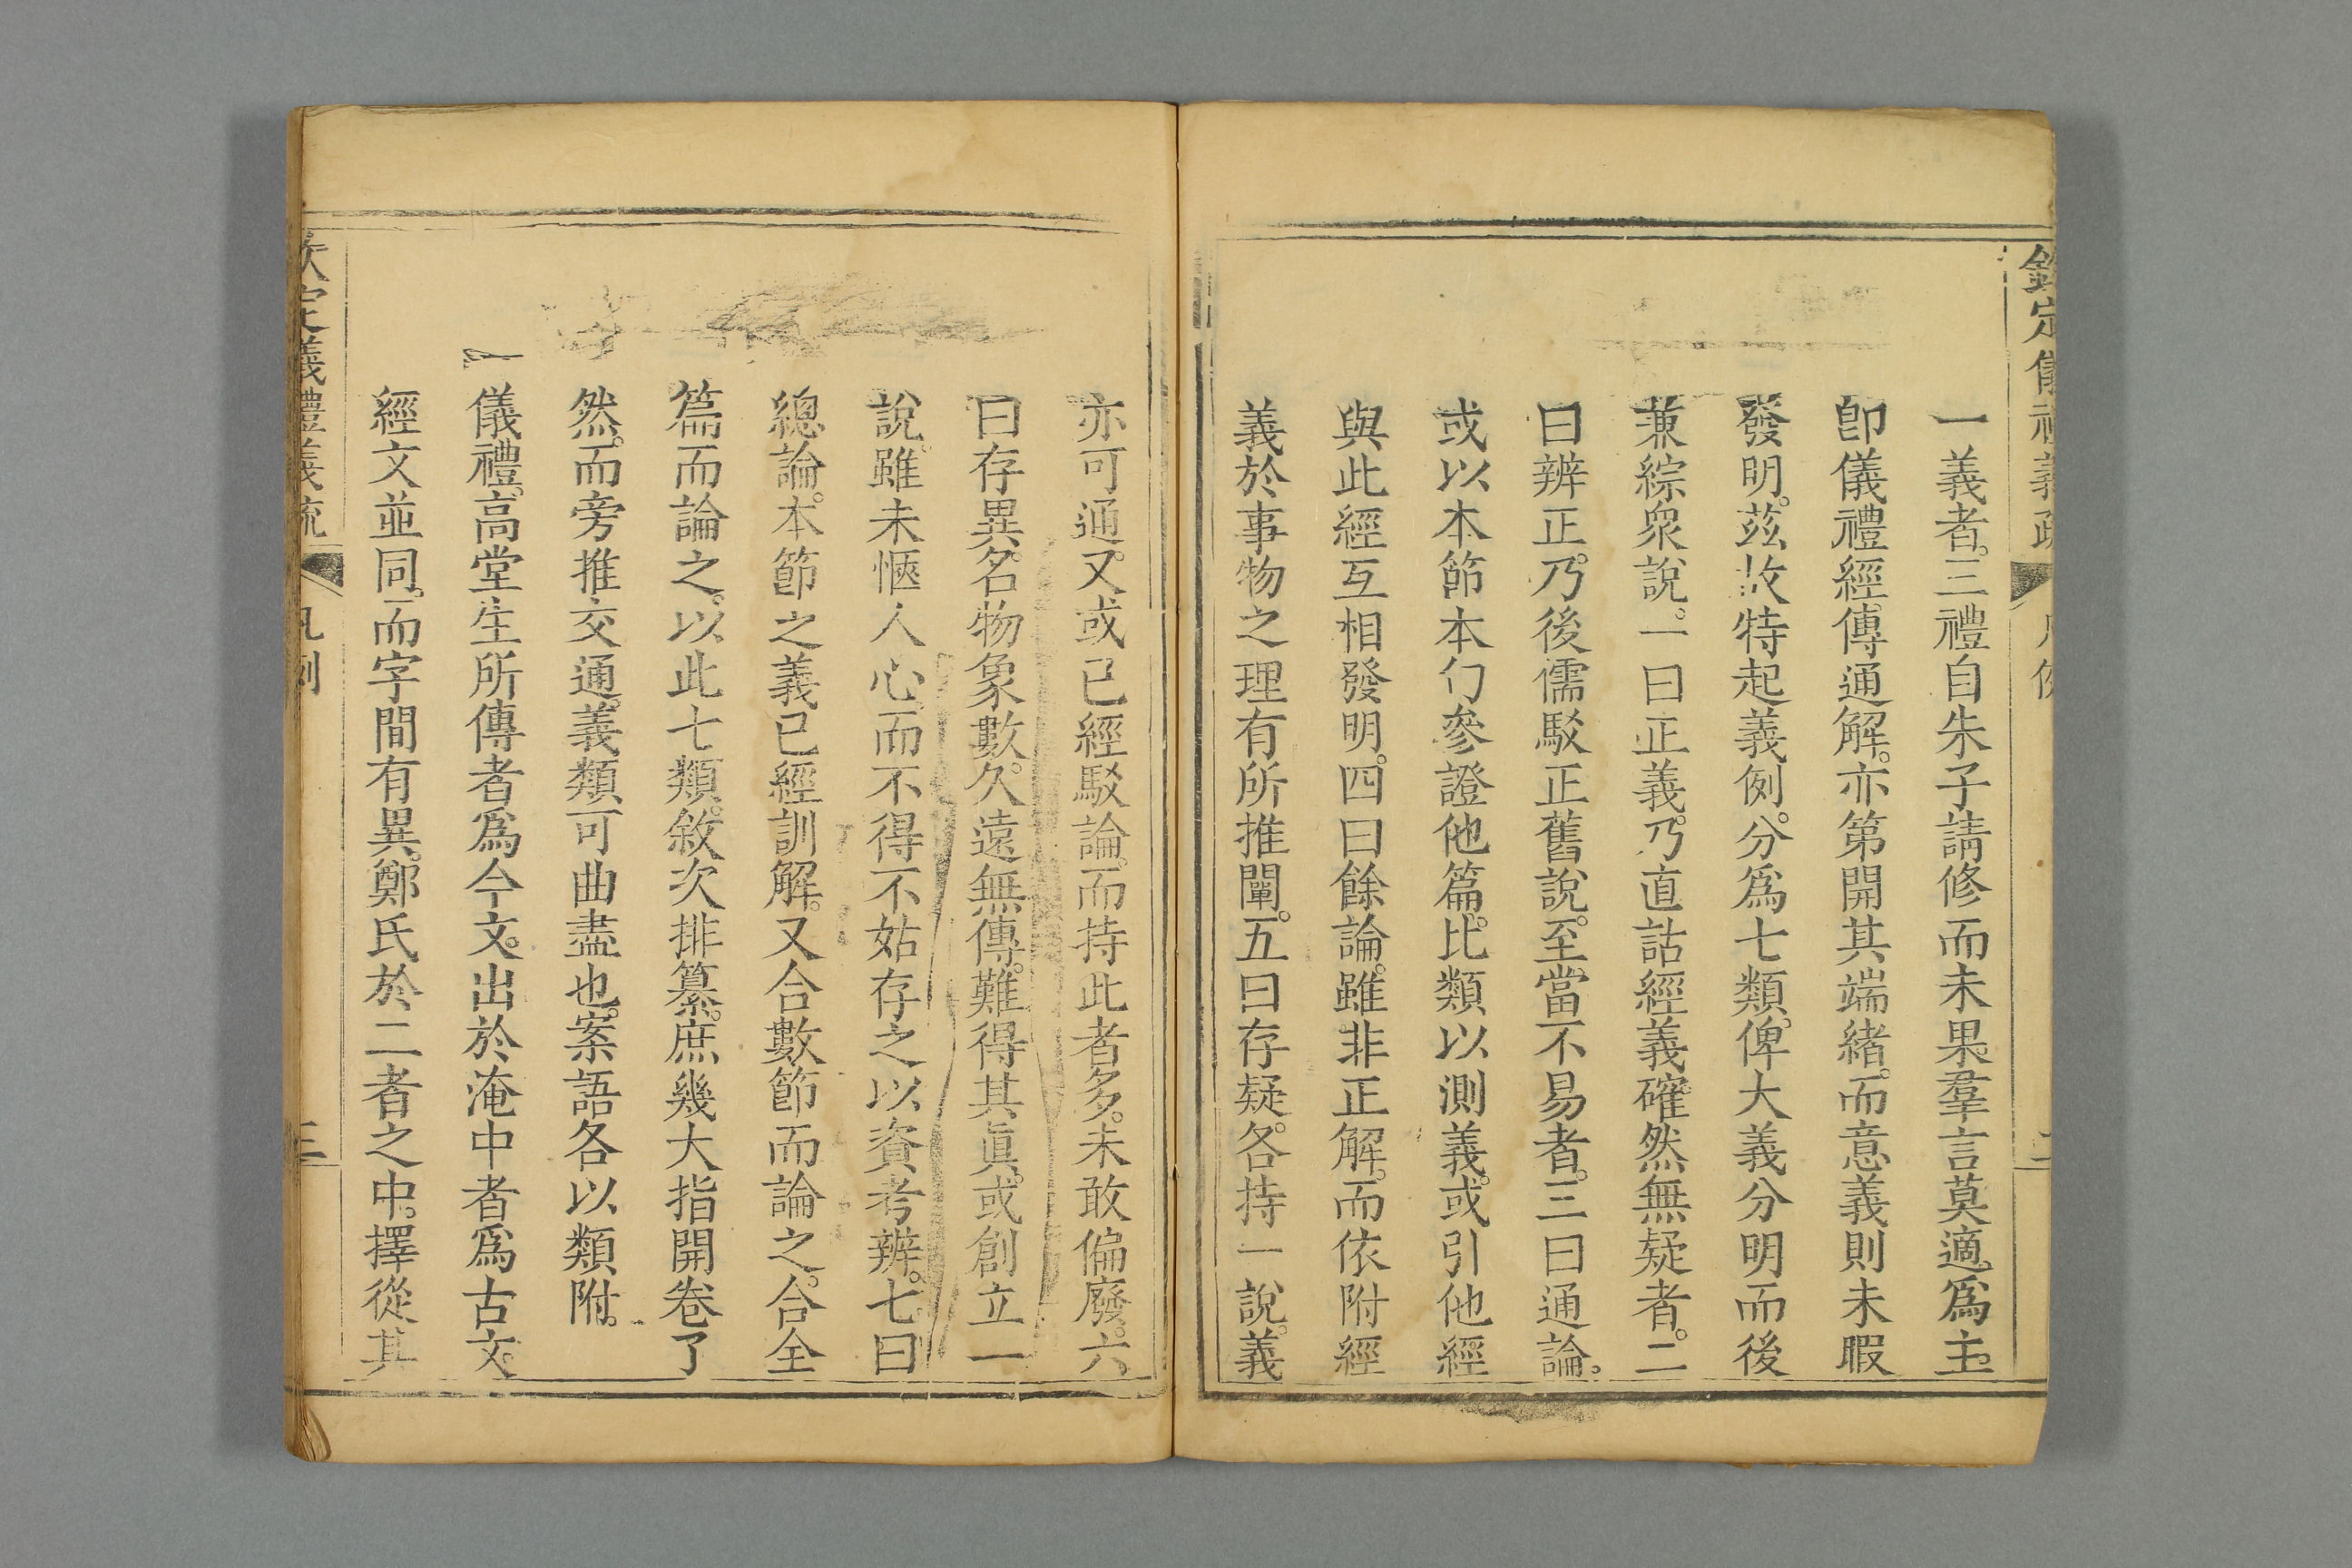 欽定儀禮義疏 凡例 二
一義者。三禮自朱子請修而未果。羣言莫適爲主。
即儀禮經傳通解。亦第開其端緒。而意義則未暇
發明。茲故特起義例。分爲七類。俾大義分明而後
兼綜衆說。一曰正義。乃直詁經義。確然無疑者。二
曰辨正。乃後儒駁正舊說。至當不易者。三曰通論。
或以本節本勺參證他篇。比類以測義。或引他經
與此經互相發明。四曰餘論。雖非正解。而依附經
義於事物之理有所推闡。五曰存疑。各持一說。義
亦可通。又或已經駁論。而持此者多。未敢偏廢。六
曰存異。名物象數。久遠無傳。難得其眞。或創立一
說。雖未愜人心。而不得不姑存之以資考辨。七曰
總論。本節之義已經訓解。又合數節而論之。合全
篇而論之。以此七類。敘次排纂。庶幾大指開卷了
然。而旁推交通。義類可曲盡也。案語各以類附。
一儀禮。高堂生所傳者爲今文。出於淹中者爲古文。
經文並同。而字間有異。鄭氏於二者之中。擇從其
欽定儀禮義疏 凡例 三